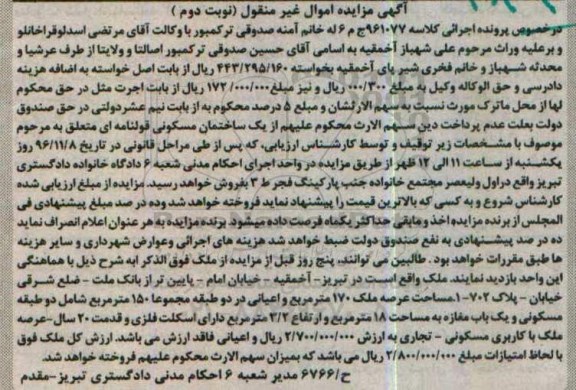 آگهی مزایده اموال غیر منقول (نوبت دوم )
درخصوص پرونده اجرائی کلاسه ۹۶۱۰۷۷ج م ۶ له خانم آمنه صدوقی ترکمبور با وکالت آقای مرتضی اسدلوقراخانلو
و برعلیه وراث مرحوم علی شهباز آخمقیه به اسامی آقای حسین صدوقی ترکمبور اصالتا و ولایتا از طرف عرشیا و
محدثه شـهباز و خانم فخری شیر پای آخمقیه بخواسته ۴۴۳/۲۹۵/۱۶۰ ریال از بابت اصل خواسته به اضافه هزینه
دادرسی و حق الوکاله وکیل به مبلغ ۰۰۰/۳۰۰ ریال و نیز مبلغ ۱۷۲/۰۰۰/۰۰۰ ریال از بابت اجرت مثل در حق محکوم
لها از محل ماترک مورث نسبت به سهم الارثشان و مبلغ ۵ درصد محکوم به از بابت نیم عشردولتی در حق صندوق
دولت بعلت عدم پرداخت دین سـهم الارث محکوم علیهم از یک ساختمان مسکونی قولنامه ای متعلق به مرحوم
موصوف با مشخصات زیر توقیف و توسط کارشناس ارزیابی، که پس از طی مراحل قانونی در تاریخ ۹۶/۱۱/۸ روز
یکشـنبه از سـاعت ۱۱ الی ۱۲ ظهر از طریق مزایده در واحد اجرای احکام مدنی شعبه ۶ دادگاه خانواده دادگستری
تبریز واقع دراول ولیعصر مجتمع خانواده جنب پارکینگ فجر ط ۳ بفروش خواهد رسید. مزایده از مبلغ ارزیابی شده
کارشناس شروع و به کسی که بالاترین قیمت را پیشنهاد نماید فروخته خواهد شد وده در صد مبلغ پیشنهادی فی
المجلس از برنده مزایده اخذ و مابقی حداکثر یکماه فرصت داده میشود. برنده مزایده به هر عنوان اعلام انصراف نماید
ده در صد پیشـنهادی به نفع صندوق دولت ضبط خواهد شد هزینه های اجرائی وعوارض شهرداری و سایر هزینه
ها طبق مقررات خواهد بود . طالبین می توانند، پنج روز قبل از مزایده از ملک فوق الذکر ابه شرح ذیل با هماهنگی
این واحد بازدید نمایند. ملک واقع اسـت در تبریز- آخمقیه - خیابان امام - پایین تر از بانک ملت - ضلع شـرقی
خیابان - پلاک ۷۰۲ -۱.مساحت عرصه ملک ۱۷۰ مترمربع و اعیانی در دو طبقه مجموعا ۱۵۰ مترمربع شامل دو طبقه
مسکونی و یک باب مغازه به مساحت ۱۸ مترمربع و ارتفاع ۳/۲ مترمربع دارای اسکلت فلزی و قدمت ۲۰ سال-عرصه
ملک با کاربری مسکونی - تجاری به ارزش ۲/۷۰۰/۰۰۰/۰۰۰ ریال و اعیانی فاقد ارزش می باشد. ارزش کل ملک فوق
با لحاظ امتیازات مبلغ ۲/۸۰۰/۰۰۰/۰۰۰ ریال می باشد که بمیزان سهم الارث محکوم علیهم فروخته خواهد شد.
ح/۶۷۶۶ مدیر شعبه ۶ احکام مدنی دادگستری تبریز-مقدم